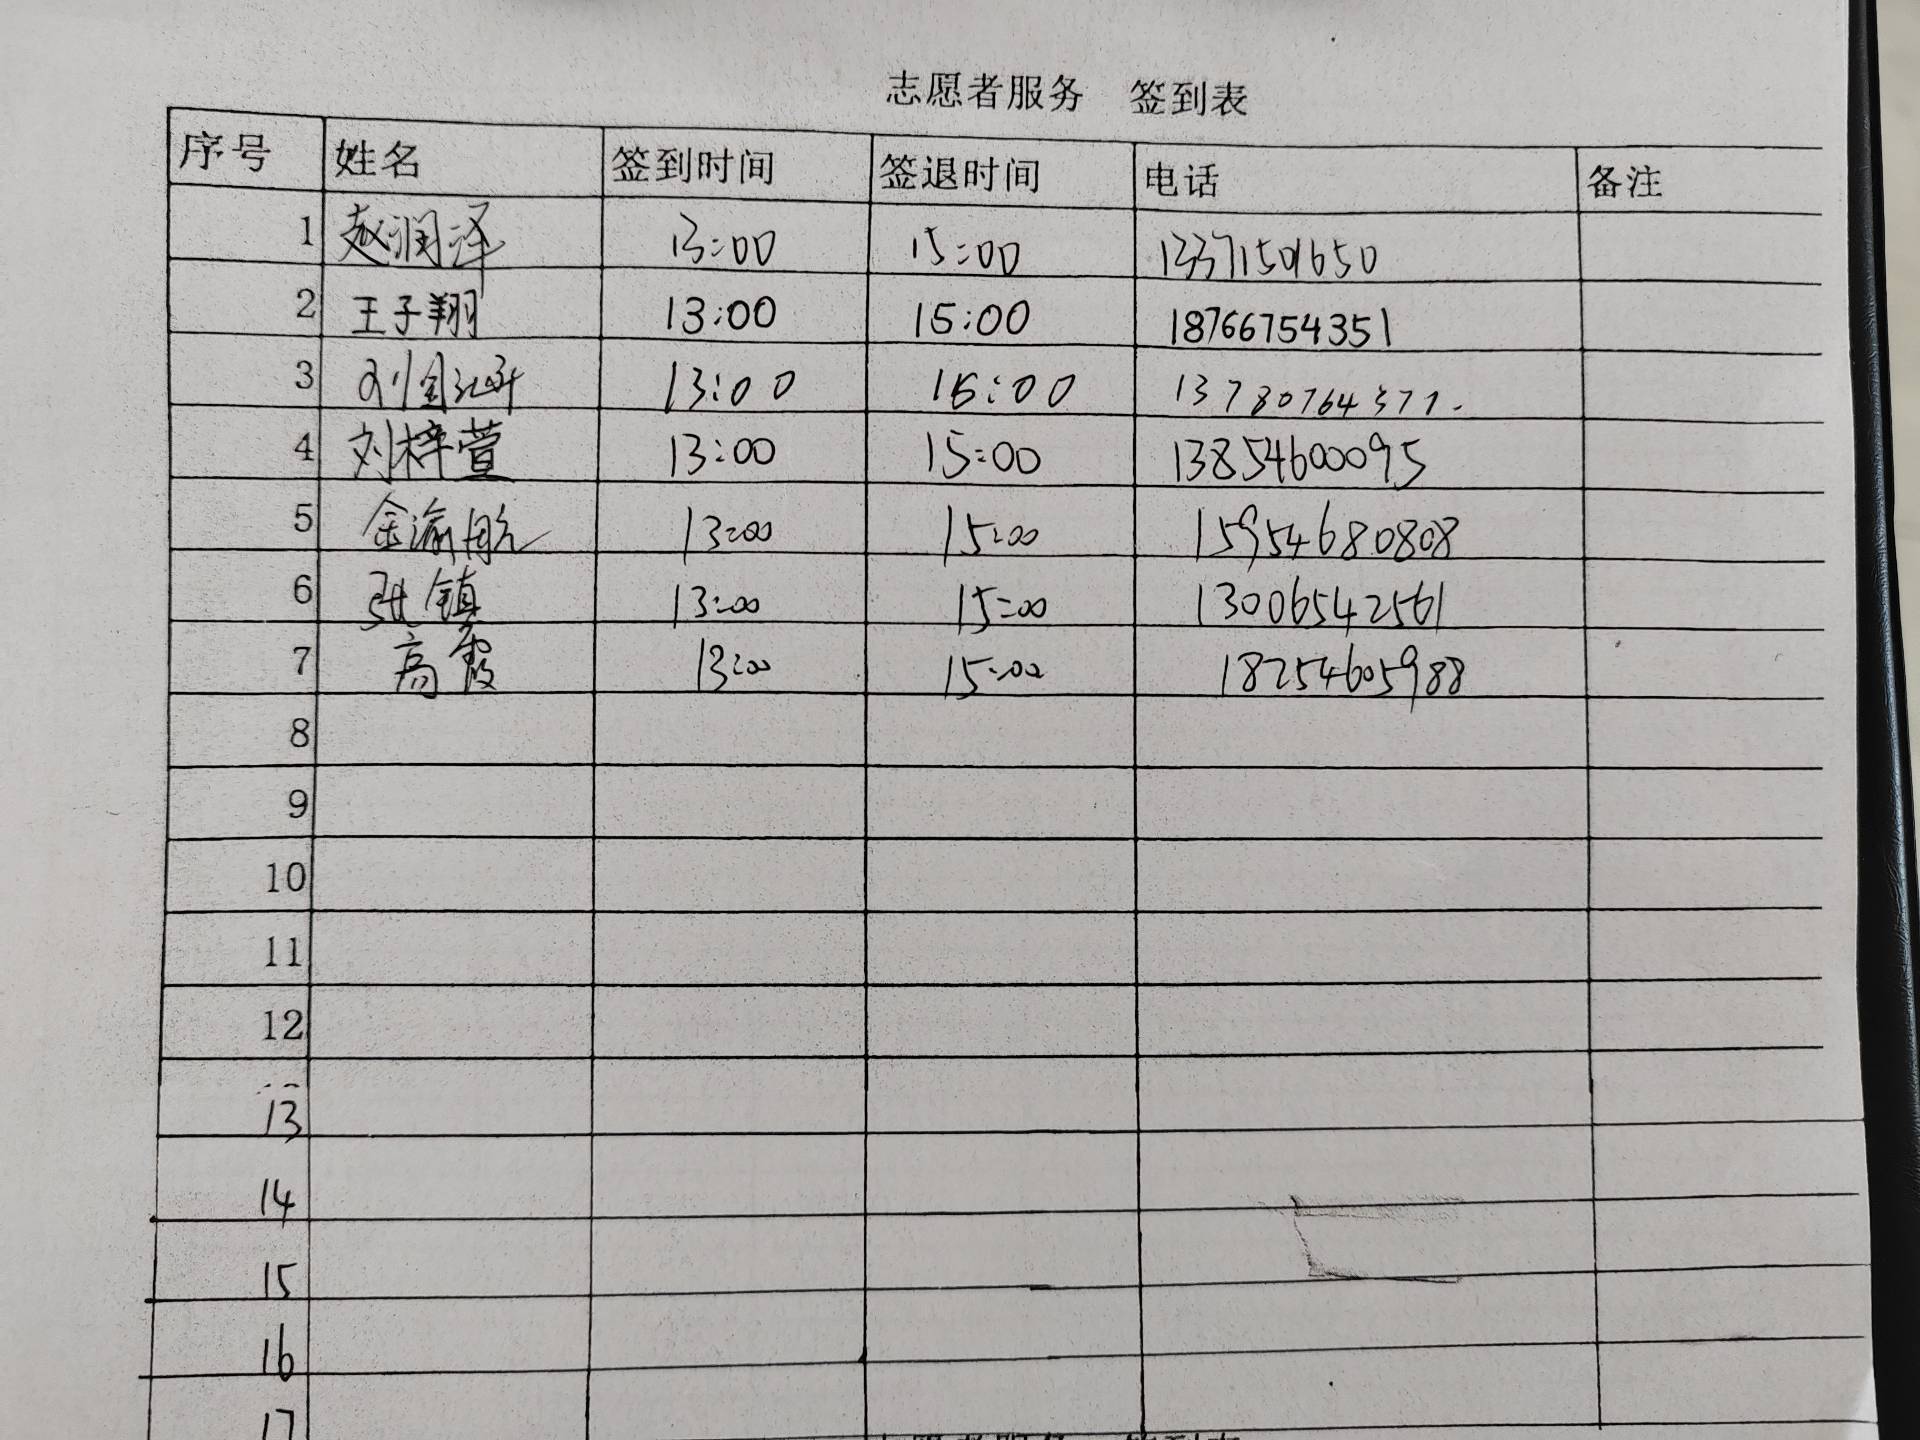 志愿者服务 签到表
序号 姓名 签到时间 签退时间 电话 备注
1 赵润泽 13:00 15:00 13371501650
2 王子翔 13:00 15:00 18766754351
3 刘国 13:00 15:00 13780764371.
4 刘梓萱 13:00 15:00 13854600095
5 金渝航 13:00 15:00 15954680808
6 张镇 13:00 15:00 13006542561
7 高霞 13:00 15:00 18254605988
8
9
10
11
12
13
14
15
16
17